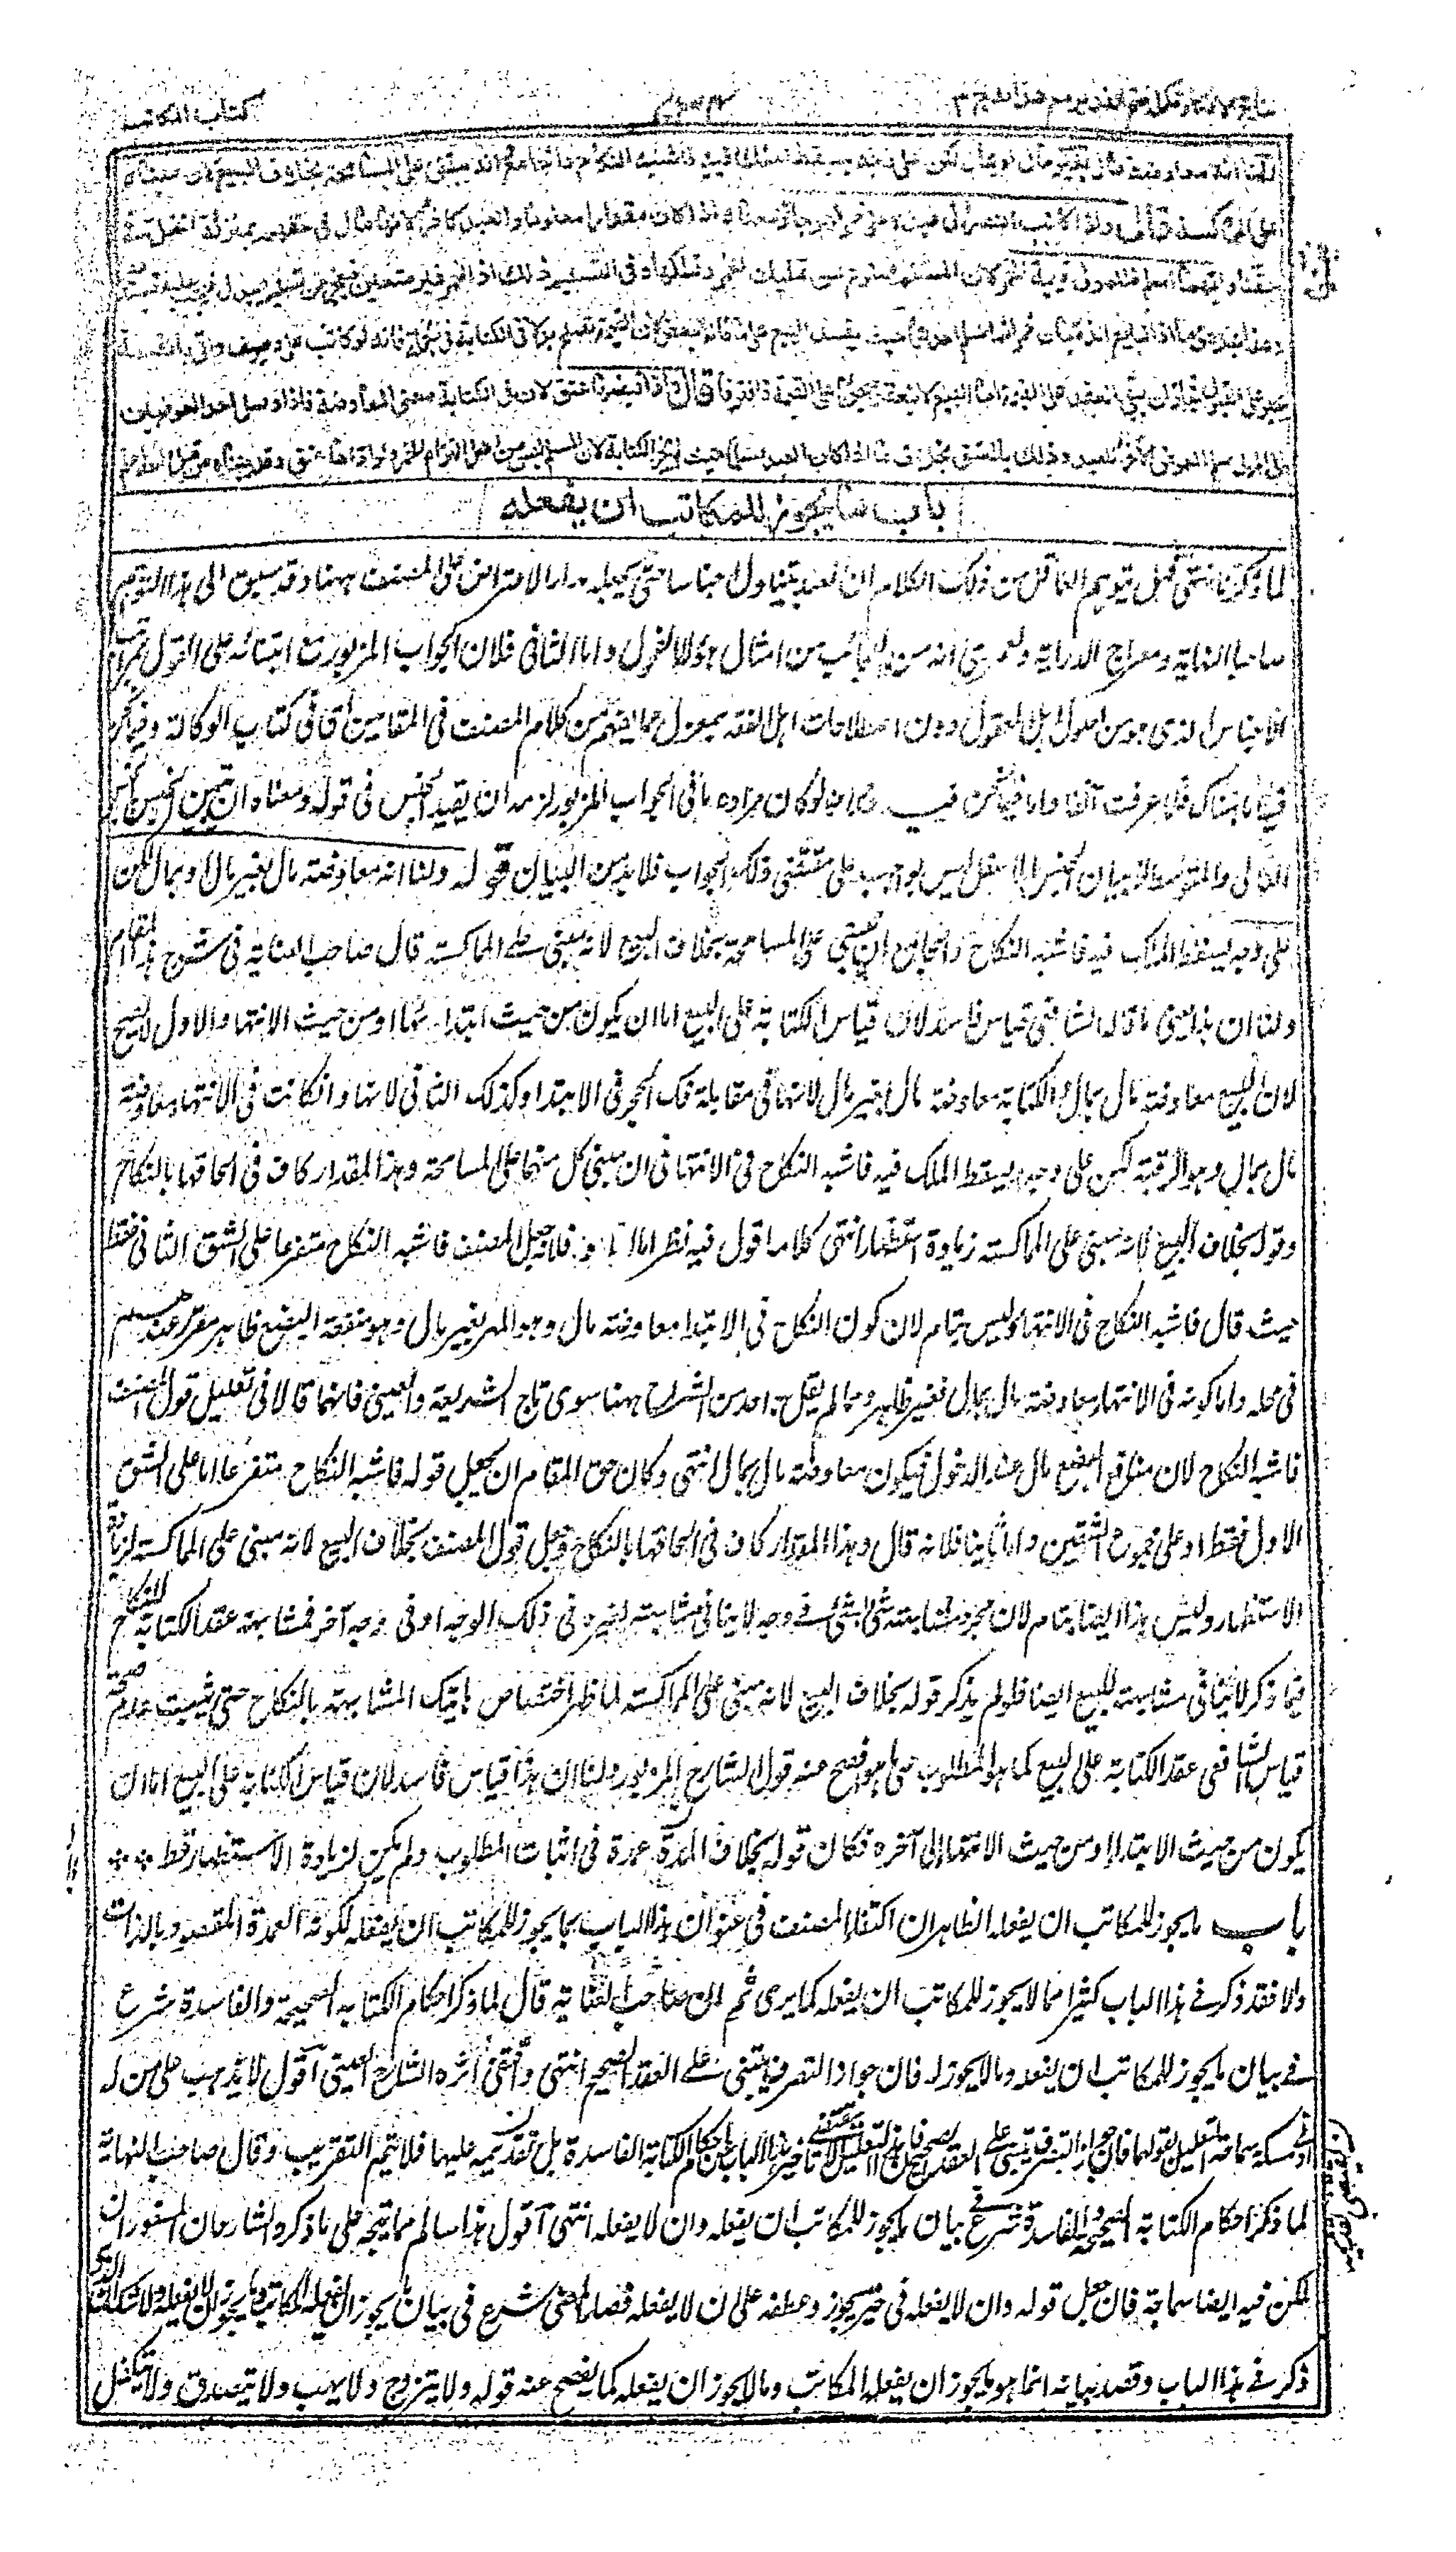 نتائج الافكار تكملة فتح القدير مع هداية ج ٣
كتاب المكاتب
ولنا انه معاوضة مال بغير مال او بمال لكن على وجه يسقط الملك فيه فاشبه النكاح والجامع انه يبتنى على المسامحة بخلاف البيع لان مبناه
على المماكسة قال واذا كاتب النصرانى عبده على خمر فهو جائز معناه اذا كان مقدارا معلوما والعبد كافرا لانها مال فى حقهم بمنزلة الخل فى
حقنا وايهما اسلم فللمولى قيمة الخمر لان المسلم ممنوع عن تمليك الخمر وتملكها وفى التسليم ذلك اذ الخمر غير معين فيعجز عن تسليم البدل فيجب عليه قيمتها
وهذا بخلاف ما اذا تبايع الذميان خمرا ثم اسلم احدهما حيث يفسد البيع على ما قاله البعض لان القيمة تصلح بدلا فى الكتابة فى الجملة فانه لو كاتب على وصيف واتى بالقيمة
يجبر على القبول فجاز ان يبقى العقد على القيمة اما البيع لا ينعقد صحيحا على القيمة فافترقا قال واذا قبضها عتق لان فى الكتابة معنى المعاوضة فاذا وصل احد العوضين
الى المولى سلم العوض الآخر للعبد وذلك بالعتق بخلاف ما اذا كان العبد مسلما حيث لم يجز الكتابة لان المسلم ليس من اهل التزام الخمر ولو اداها عتق وقد بيناه من قبل والله اعلم
باب ما يجوز للمكاتب ان يفعله
لما ذكرنا انتهى قبل يتوهم الناقل من ذلك الكلام ان العبد يتناول اجناسا حتى يجعله مدار الاعتراض على المصنف ههنا وقد سبق الى هذا التوهم
صاحبا النهاية ومعراج الدراية ولعمرى انه من العجائب من امثال هؤلاء الفحول واما الثانى فلان الجواب المزبور مع ابتنائه على القول بمراتب
الاجناس الذى هو من اصول اهل المعقول دون اصطلاحات اهل الفقه بمعزل عما يفهم من كلام المصنف فى المقامين اى فى كتاب الوكالة وفيما نحن
فيه اما هناك فلما عرفت آنفا واما فيما نحن فيه فلانه لو كان مراده ما فى الجواب المزبور لزمه ان يقيد الجنس فى قوله ومعناه ان يبين الجنس
العالى والمتوسط اذ بيان الجنس السافل ليس بواجب على مقتضى ذلك الجواب فلا بد من البيان قوله ولنا انه معاوضة مال بغير مال او بمال لكن
على وجه يسقط الملك فيه فاشبه النكاح والجامع انه يبتنى على المسامحة بخلاف البيع لانه مبنى على المماكسة قال صاحب العناية فى شرح هذا المقام
ولنا ان هذا يعنى ما قاله الشافعى قياس فاسد لان قياس الكتابة على البيع اما ان يكون من حيث ابتدائها او من حيث الانتهاء والاول لا يصح
لان البيع معاوضة مال بمال والكتابة معاوضة مال بغير مال لانها فى مقابلة فك الحجر فى الابتداء وكذلك الثانى لانها وان كانت فى الانتهاء معاوضة
مال بمال وهو الرقبة لكن على وجه يسقط الملك فيه فاشبه النكاح فى الانتهاء فى ان مبنى كل منهما على المسامحة وهذا المقدار كاف فى الحاقها بالنكاح
وقوله بخلاف البيع لانه مبنى على المماكسة زيادة استظهار انتهى كلامه اقول فيه نظر اما اولا فلانه جعل المصنف فاشبه النكاح متفرعا على الشق الثانى فقط
حيث قال فاشبه النكاح فى الانتهاء وليس بتام لان كون النكاح فى الابتداء معاوضة مال وهو المهر بغير مال وهو منفعة البضع ظاهر مقرر عندهم
فى محله واما كونه فى الانتهاء معاوضة مال بمال فغير ظاهر ومما لم يقل به احد من الشراح ههنا سوى تاج الشريعة والعينى فانهما قالا فى تعليل قول المصنف
فاشبه النكاح لان منافع البضع مال عند الدخول فيكون معاوضة مال بمال انتهى وكان حق المقام ان يجعل قوله فاشبه النكاح متفرعا اما على الشق
الاول فقط او على مجموع الشقين واما ثانيا فلانه قال وهذا المقدار كاف فى الحاقها بالنكاح وجعل قول المصنف بخلاف البيع لانه مبنى على المماكسة لزيادة
الاستظهار وليس هذا ايضا بتام لان مجرد مشابهة شئ لشئ فى وجه لا ينافى مشابهته لغيره فى ذلك الوجه او فى وجه آخر فمشابهة عقد الكتابة للنكاح
فيما ذكر لا ينافى مشابهته للبيع ايضا فلو لم يذكر قوله بخلاف البيع لانه مبنى على المماكسة لما ظهر اختصاص هاتيك المشابهة بالنكاح حتى يثبت عدم صحة
قياس الشافعى عقد الكتابة على البيع كما هو المطلوب على ما هو افصح عنه قول الشارح المزبور ولنا ان هذا قياس فاسد لان قياس الكتابة على البيع اما ان
يكون من حيث الابتداء او من حيث الانتهاء الى آخره فكان قوله بخلاف البيع عمدة فى اثبات المطلوب ولم يكن لزيادة الاستظهار قط
باب ما يجوز للمكاتب ان يفعله الظاهر ان اكتفاء المصنف فى عنوان هذا الباب بما يجوز للمكاتب ان يفعله لكونه العمدة المقصود بالذات
والا فقد ذكر فى هذا الباب كثيرا مما لا يجوز للمكاتب ان يفعله كما يرى ثم ان صاحب العناية قال لما ذكر احكام الكتابة الصحيحة والفاسدة شرع
فى بيان ما يجوز للمكاتب ان يفعله وما لا يجوز له فان جواز التصرف يبتنى على العقد الصحيح انتهى واقتفى اثره الشارح العينى اقول لا يذهب على من له
ادنى مسكة سماجة التعليل بقولهما فان جواز التصرف يبتنى على العقد الصحيح فان هذا التعليل لا يقتضى تاخير هذا الباب عن احكام الكتابة الفاسدة بل تقديمه عليها فلا يتم التقريب وقال صاحب النهاية
لما ذكر احكام الكتابة الصحيحة والفاسدة شرع فى بيان ما يجوز للمكاتب ان يفعله وان لا يفعله انتهى اقول هذا سالم مما يتجه على ما ذكره الشارحان المسفوران
لكن فيه ايضا سماجة فان جعل قوله وان لا يفعله فى حيز يجوز وعطفه على ان لا يفعله فصار المعنى شرع فى بيان ما يجوز ان يفعله المكاتب وما يجوز ان لا يفعله ولا شك ان الذى
ذكر فى هذا الباب وقصد بيانه انما هو ما يجوز ان يفعله المكاتب وما لا يجوز ان يفعله كما يفصح عنه قوله ولا يتزوج ولا يهب ولا يتصدق ولا يتكفل